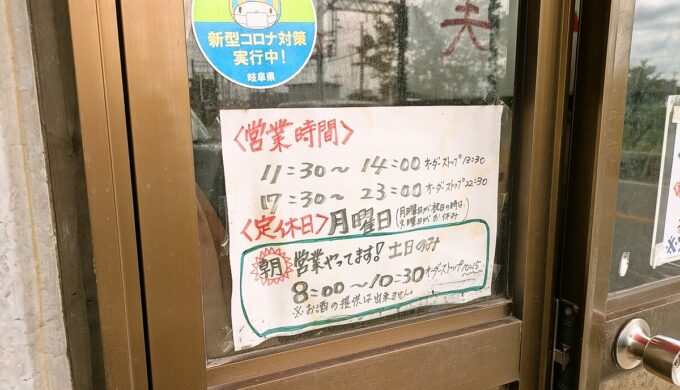 新型コロナ対策
実行中!
岐阜県
夫
<営業時間>
11:30〜14:00 オーダーストップ13:30
17:30〜23:00 オーダーストップ22:30
<定休日>月曜日(月曜日が祝日の時は、
火曜日がお休み)
朝 営業やってます! 土日のみ
8:00〜10:30 オーダーストップ10:15
※お酒の提供は出来ません。